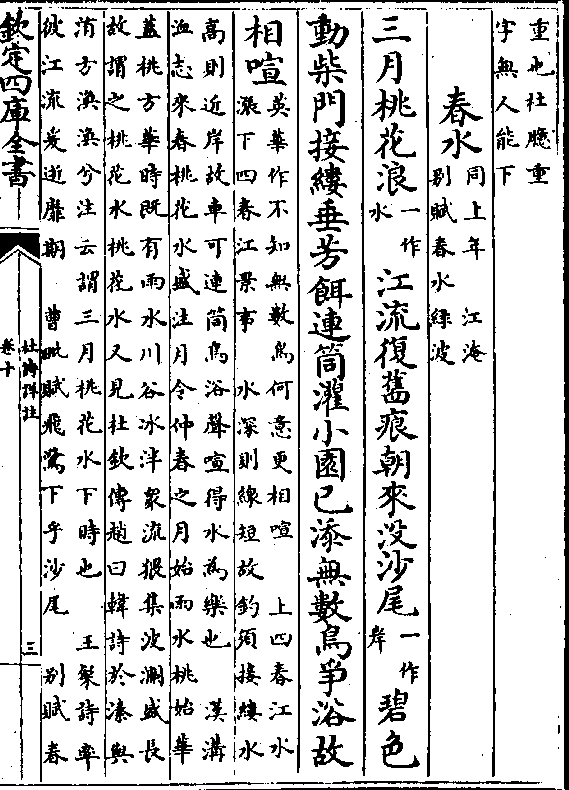 重也杜臆重
字無人能下
春水同上年　江淹
别賦春水緑波
三月桃花浪一作
水江流復舊痕朝來没沙尾一作
岸碧色
動柴門接縷垂芳餌連筒灌小園已添無數鳥爭浴故
相喧英華作不知無數鳥何意更相喧　上四春江水
漲下四春江景事　水深則線短故釣須接縷水
高則近岸故車可連筒鳥浴聲喧得水為樂也　漢溝
洫志來春桃花水盛注月令仲春之月始雨水桃始華
蓋桃方華時既有雨水川谷冰泮衆流猥集波瀾盛長
故謂之桃花水桃花水又見杜欽傳趙曰韓詩於溱與
洧方渙渙兮注云謂三月桃花水下時也　王粲詩率
彼江流爰逝靡期　曹毗賦飛鷺下乎沙尾　别賦春
欽定四庫全書
杜詩詳註
卷十
三